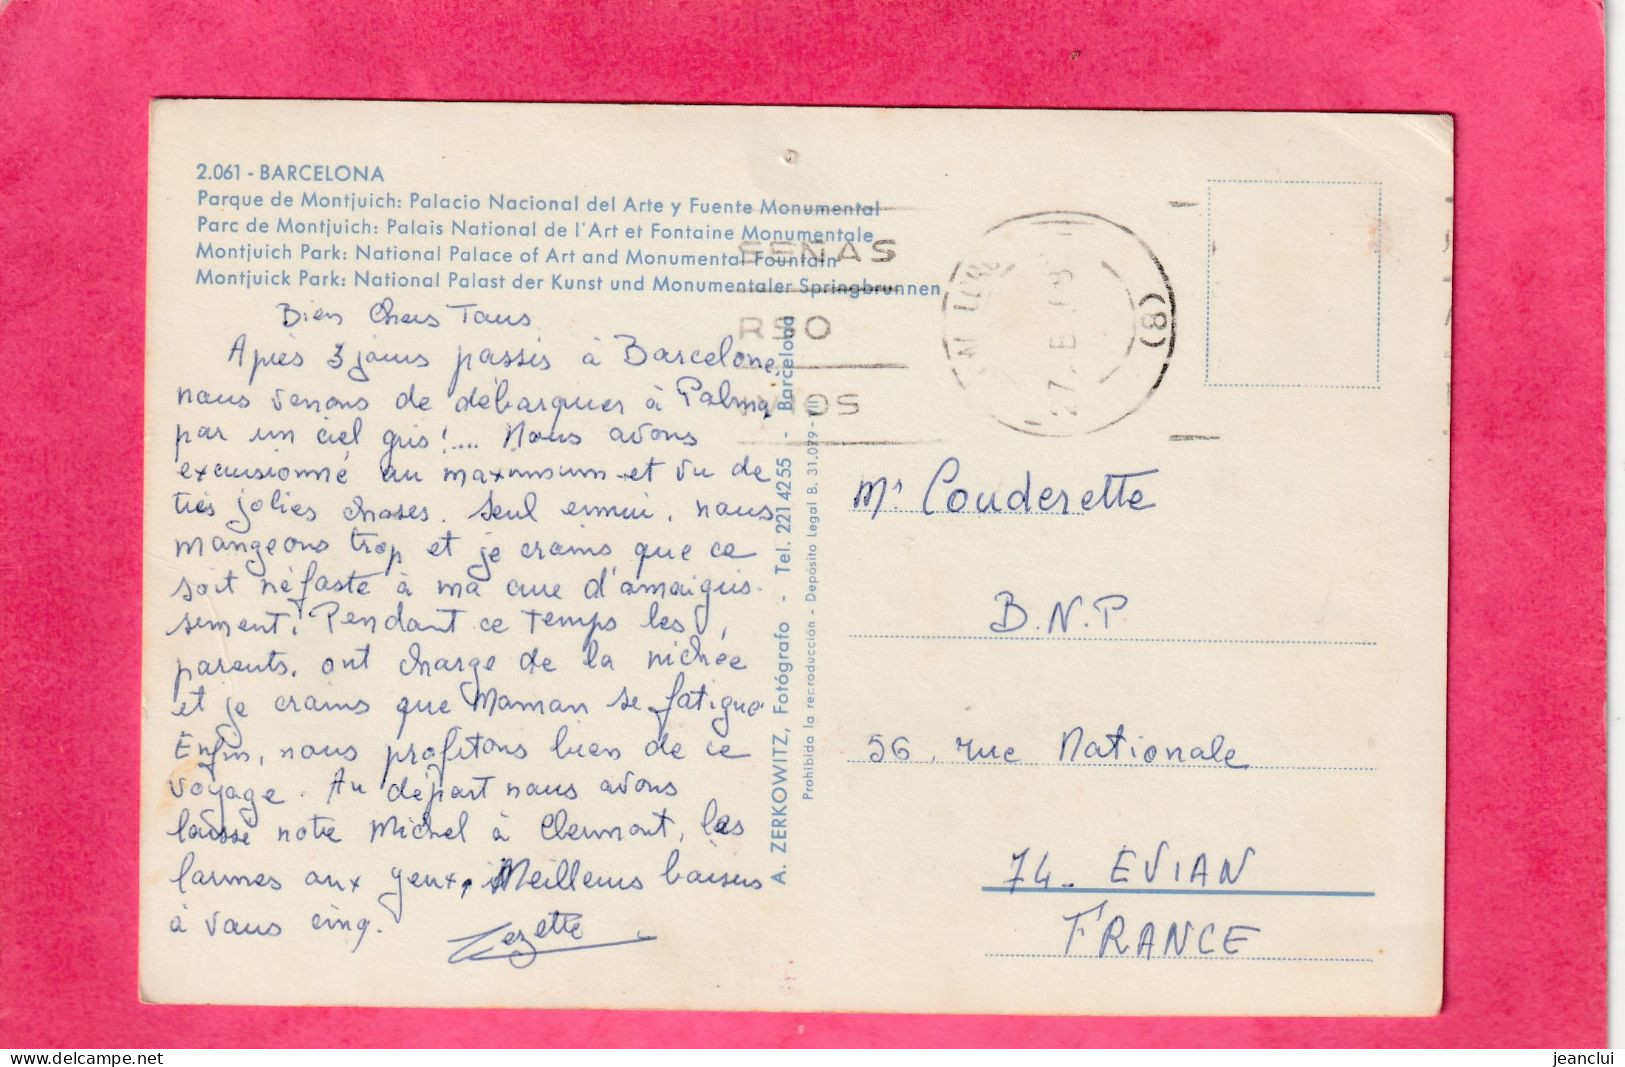 2.061 - BARCELONA
Parque de Montjuich: Palacio Nacional del Arte y Fuente Monumental
Parc de Montjuich: Palais National de l'Art et Fontaine Monumentale
Montjuich Park: National Palace of Art and Monumental Fountain
Montjuick Park: National Palast der Kunst und Monumentaler Springbrunnen
Bien Chers Tous
Après 3 jours passés à Barcelone,
nous venons de débarquer à Palma,
par un ciel gris !.... Nous avons
excursionné au maximum et vu de
très jolies choses. Seul ennui, nous
mangeons trop et je crains que ce
soit néfaste à ma cure d'amaigris-
sement. Pendant ce temps les
parents, ont charge de la nichée
et je crains que Maman se fatigue
Enfin, nous profitons bien de ce
voyage. Au départ nous avons
laissé notre Michel à Clermont, les
larmes aux yeux. Meilleurs baisers
à vous cinq.
Zezette
A. ZERKOWITZ, Fotógrafo - Tel. 221 42 55 - Barcelona
Prohibida la reproducción - Depósito Legal B. 31.079 - VIII
SEÑAS
RSO
VIOS
(8)
Mr Couderette
B.N.P.
56, rue Nationale
74 - EVIAN
FRANCE
jeanclui